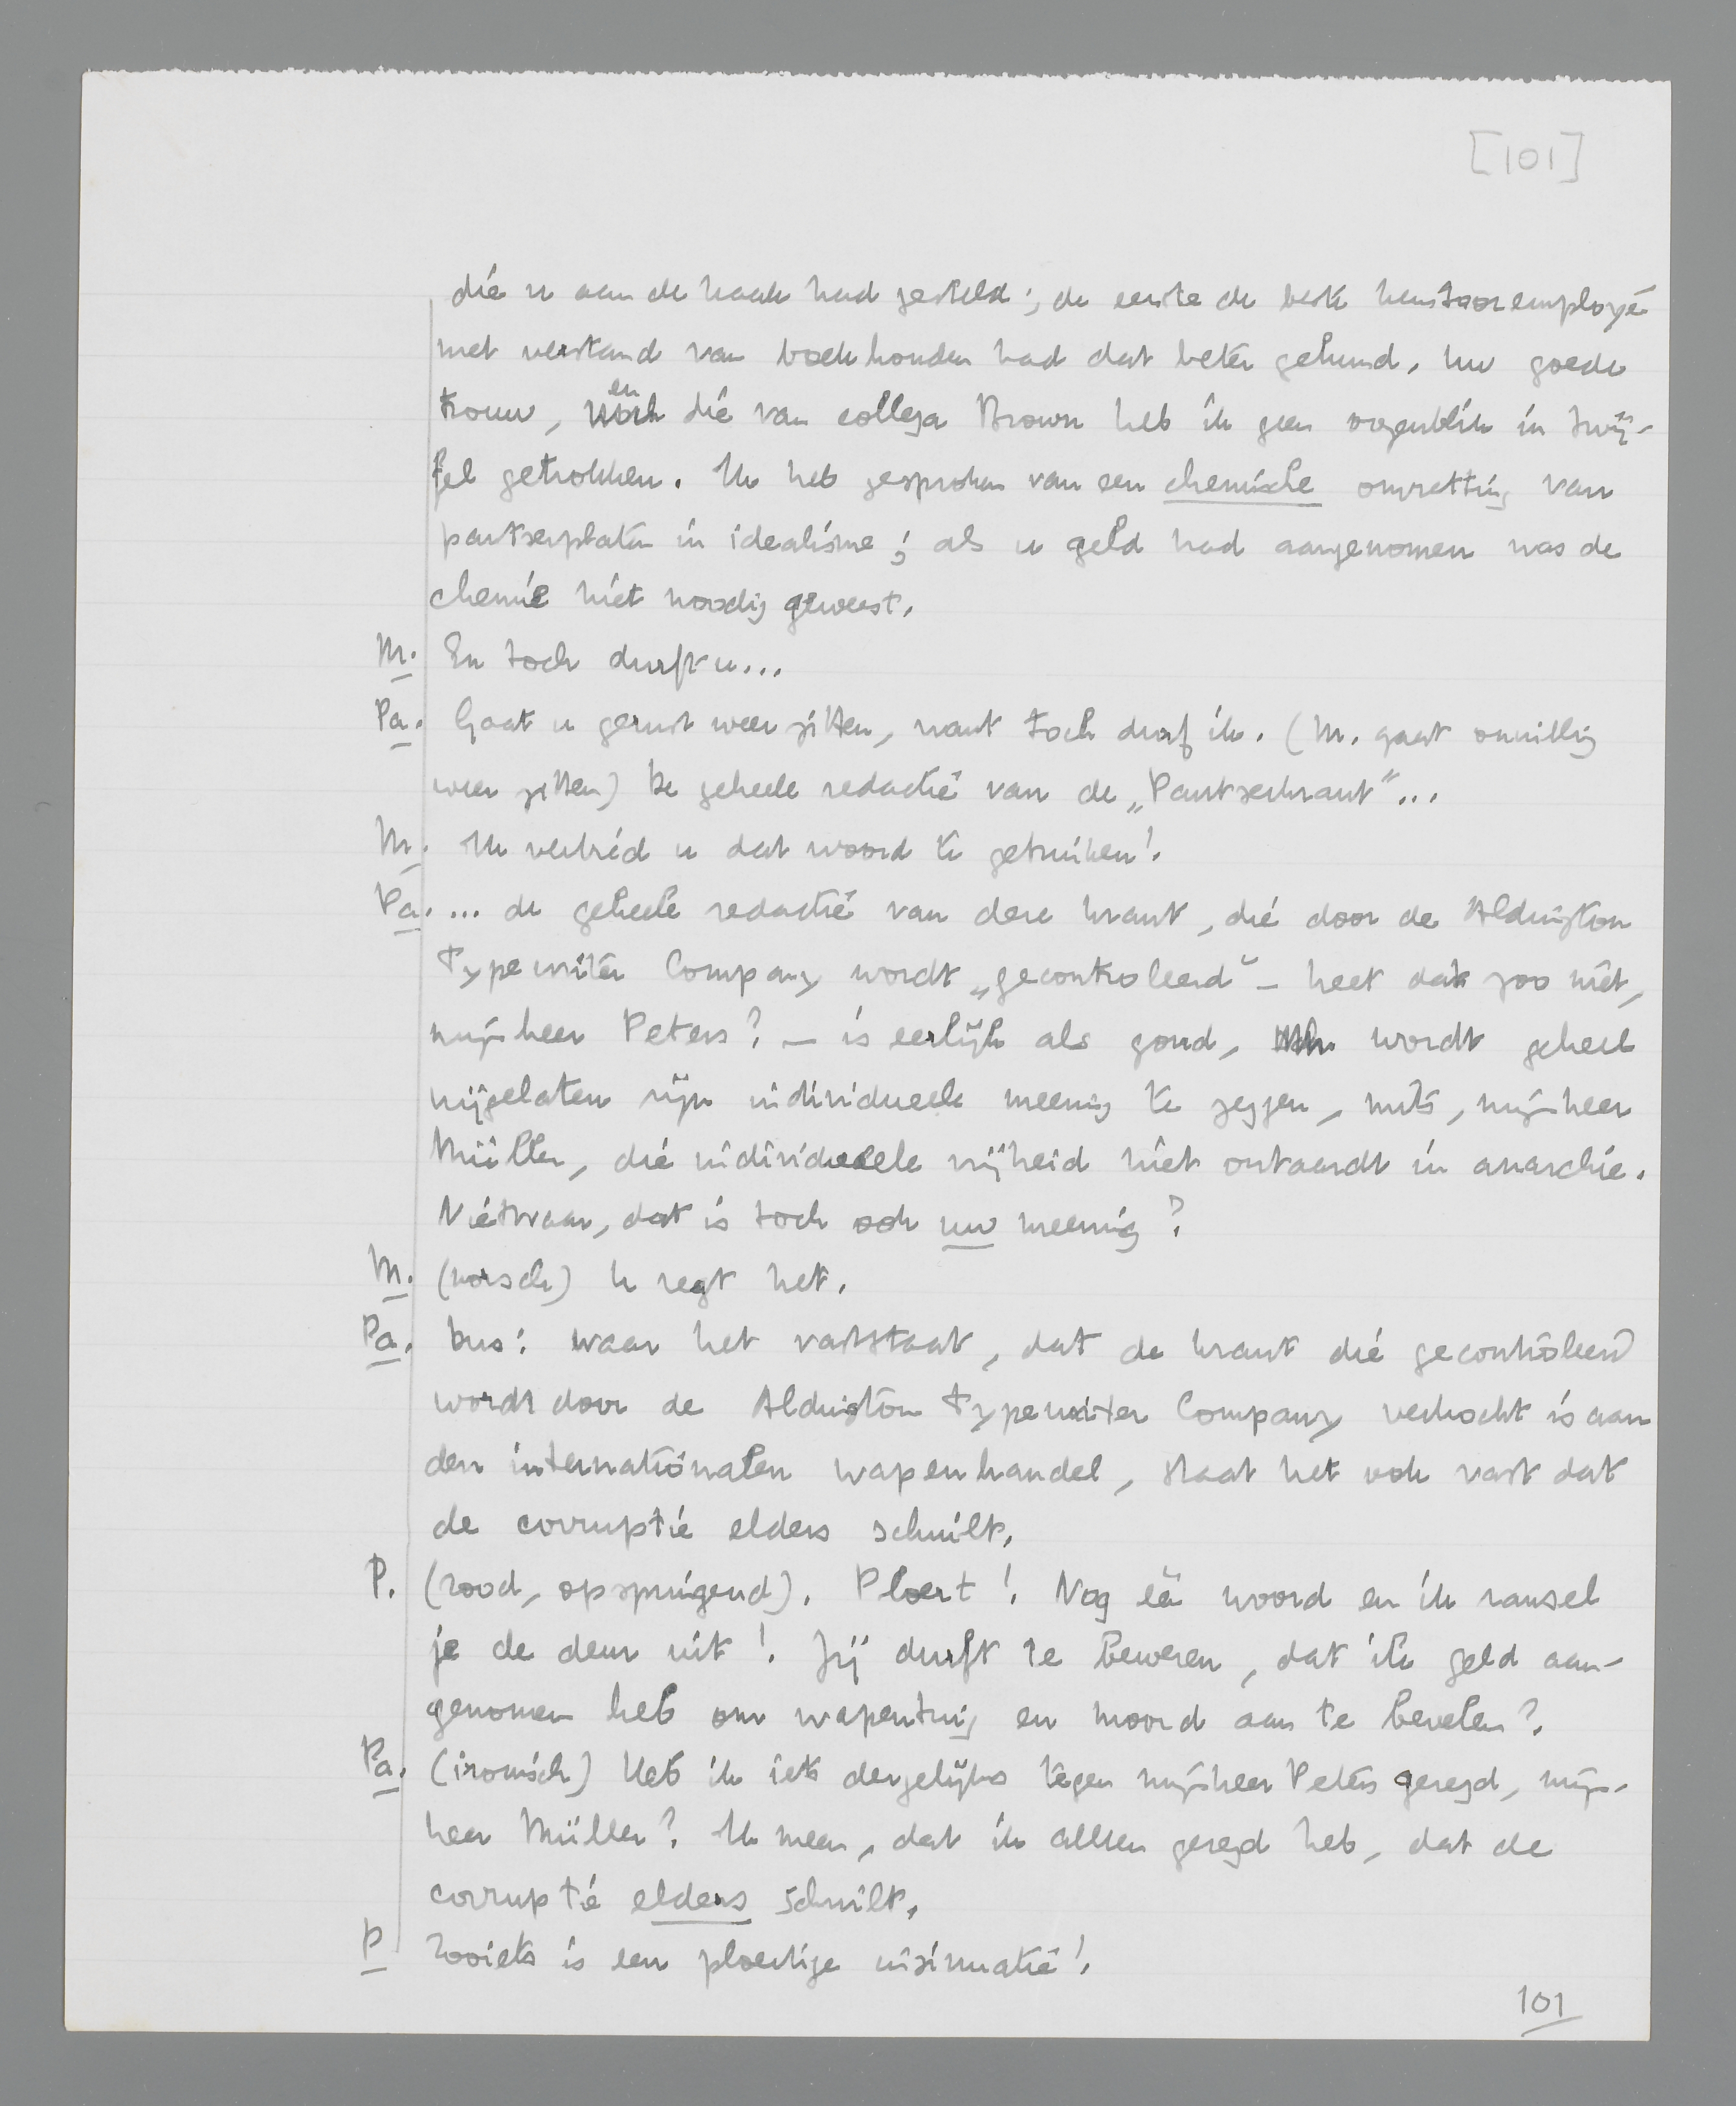 [101]
die u aan de kaak had gesteld; de eerste de beste kantooremployé
met verstand van boekhouden had dat beter gekund. Uw goede
trouw, en die van collega Brown heb ik geen oogenblik in twij-
fel getrokken. Ik heb gesproken van een chemische omzetting van
pantserplaten in idealisme; als u geld had aangenomen was de
chemie niet noodig geweest.
M. En toch durft u...
Pa. Gaat u gerust weer zitten, want toch durf ik. (M. gaat onwillig
weer zitten) De geheele redactie van de „Pantserkrant"...
M. Ik verbied u dat woord te gebruiken!
Pa. ... de geheele redactie van deze krant, die door de Aldington
Typewriter Company wordt „gecontroleerd" – heet dat zoo niet,
mijnheer Peters? – is eerlijk als goud, wordt geheel
vrijgelaten zijn individueele meening te zeggen, mits, mijnheer
Müller, die individueele vrijheid niet ontaardt in anarchie.
Nietwaar, dat is toch ook uw meening?
M. (norsch) U zegt het.
Pa. Dus: waar het vaststaat, dat de krant die gecontroleerd
wordt door de Aldington Typewriter Company verkocht is aan
den internationalen wapenhandel, staat het ook vast dat
de corruptie elders schuilt.
P. (rood, opspringend). Ploert! Nog één woord en ik ransel
je de deur uit! Jij durft te beweren, dat ik geld aan-
genomen heb om wapentuig en moord aan te bevelen?
Pa. (ironisch) Heb ik iets dergelijks tegen mijnheer Peters gezegd, mijn-
heer Müller? Ik meen, dat ik alleen gezegd heb, dat de
corruptie elders schuilt.
P Zooiets is een ploertige insinuatie!
101